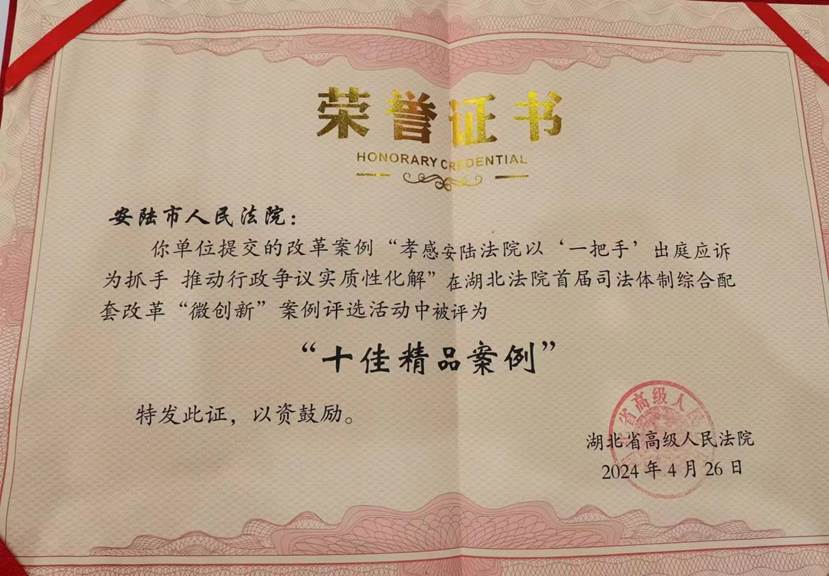 荣誉证书
HONORARY CREDENTIAL
安陆市人民法院：
你单位提交的改革案例“孝感安陆法院以‘一把手’出庭应诉
为抓手 推动行政争议实质性化解”在湖北法院首届司法体制综合配
套改革“微创新”案例评选活动中被评为
“十佳精品案例”
特发此证，以资鼓励。
省高级人民
湖北省高级人民法院
2024年4月26日